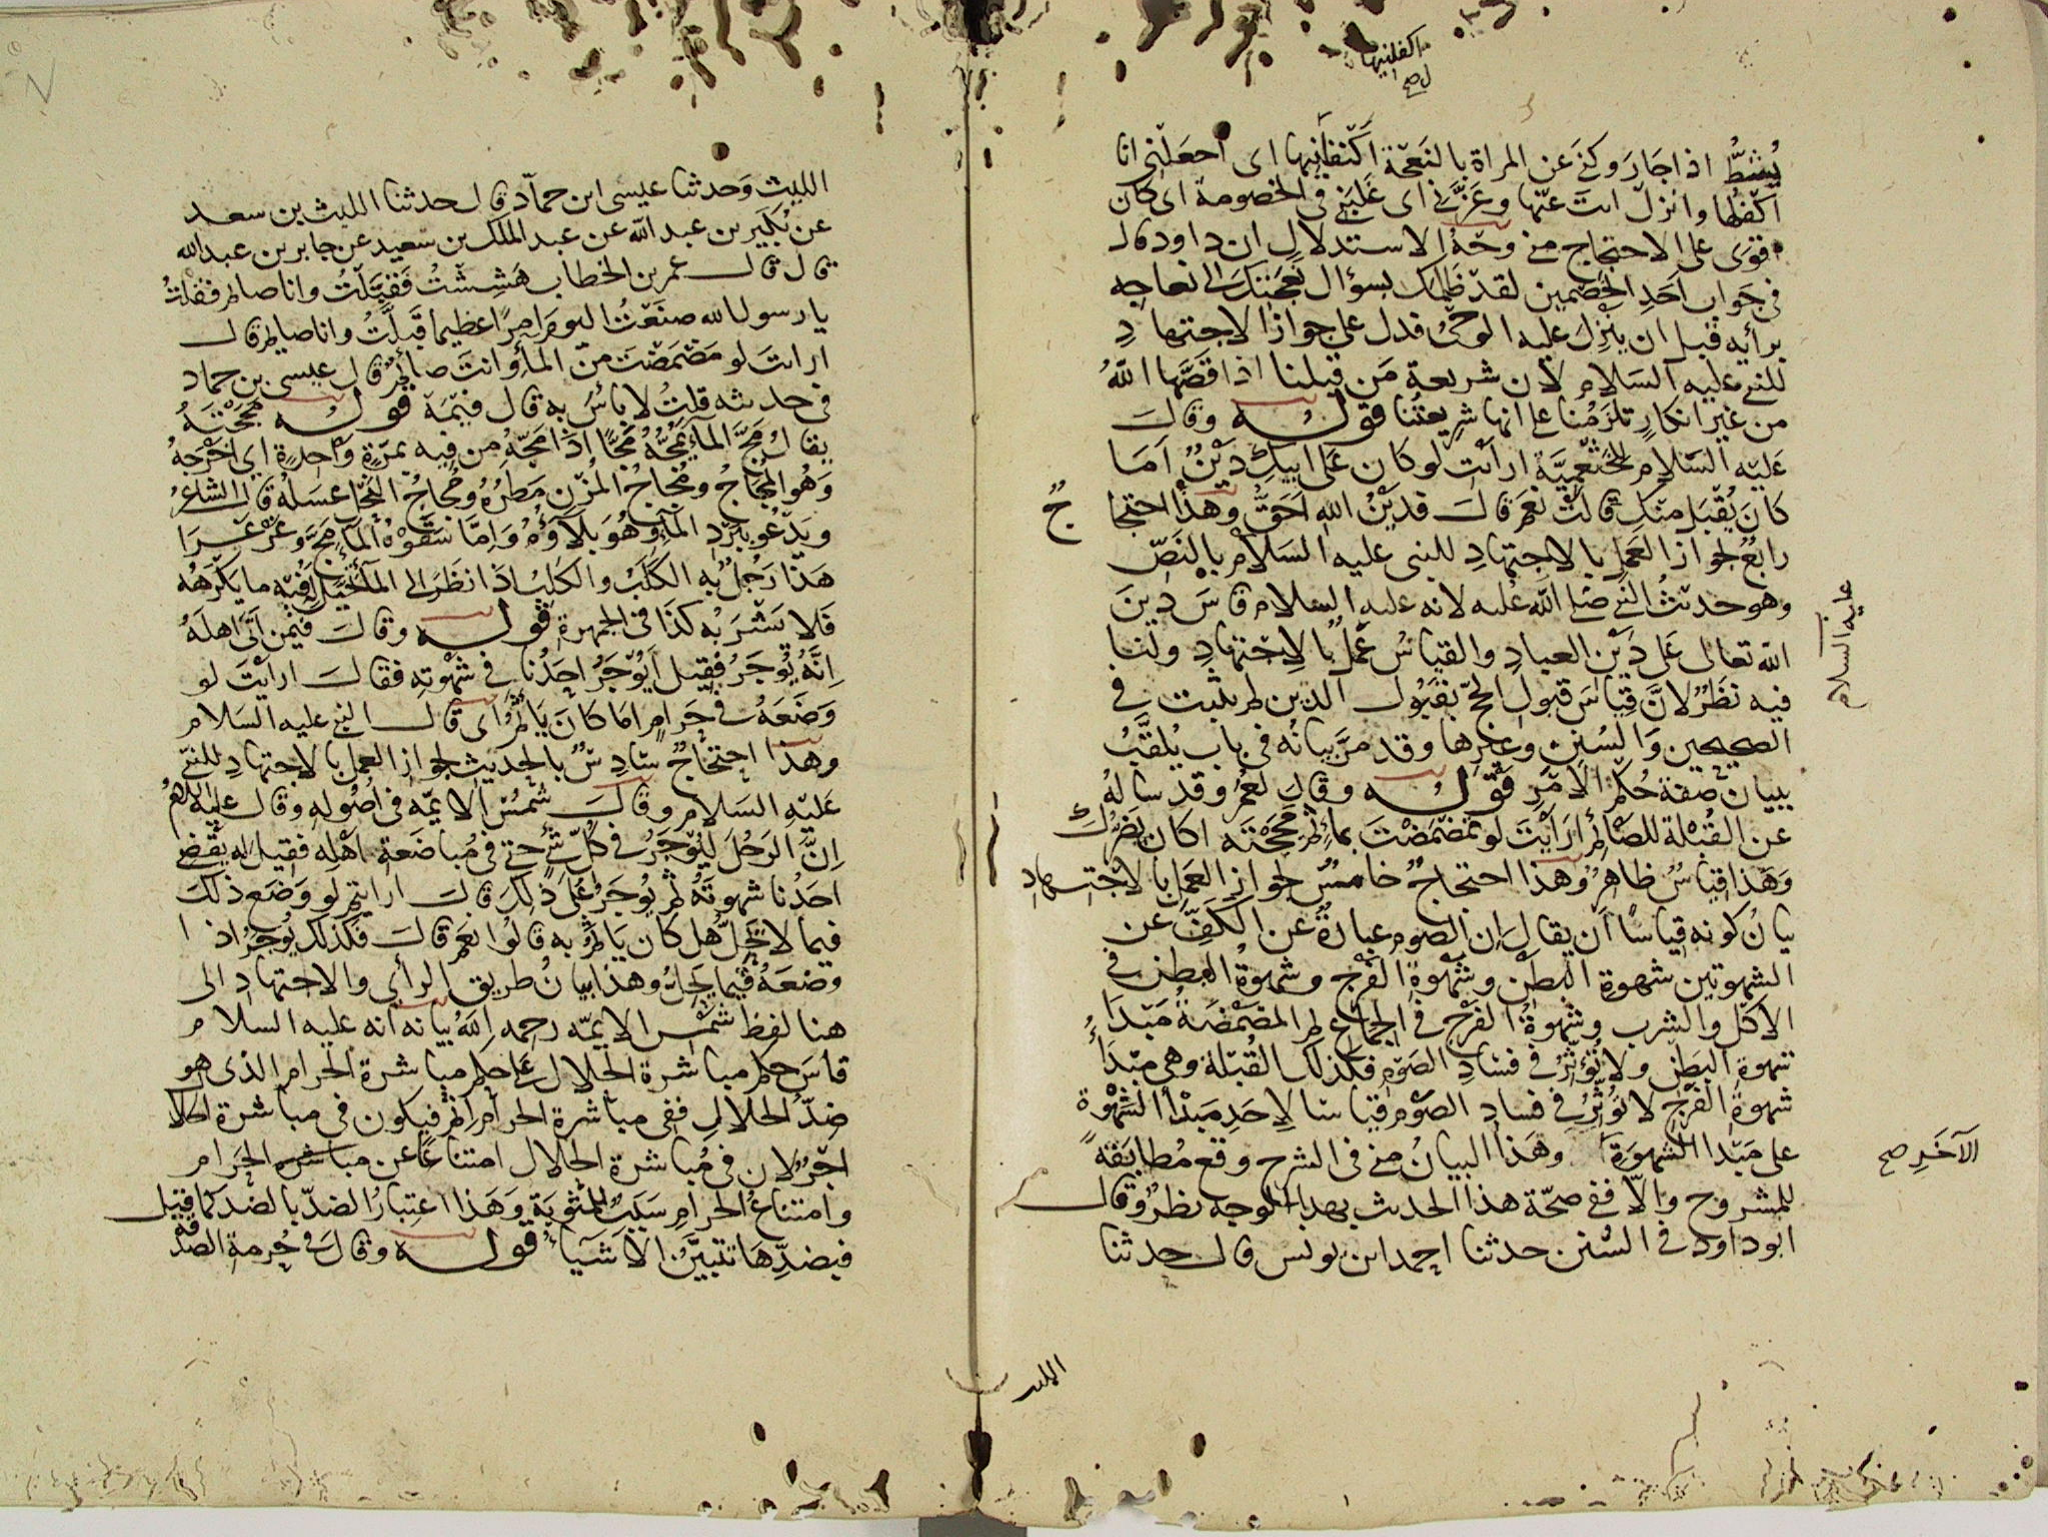 اكفلنيها
صح
يُشطُّ اذا جَارَ وكنَى عن المراة بالنَعجَة اكفلنيها اى اجعَلنى انا
اكفلُها وانزل انت عنها وعَزَّنى اى غَلبَنى فى الخصومة اى كان
اقوى على الاحتجاج منى وجهُ الاستدلال ان داود قال
فى جَواب اَحَدِ الخَصْمين لقد ظلمك بسؤال نَعجَتك الى نعاجه
برأيه قبل ان ينزلَ عليه الوحىُ فدل على جواز الاجتهادِ
للنبى عليه السلام لان شريعة مَن قبلنا اذا قصَّها اللهُ
من غير انكارٍ تلزمُنا على انها شريعتُنا قولـه وقال
عَليه السّلام للخثعميَّة ارأيت لو كان على ابيكِ دَيْنٌ اَمَا
كان يُقبَل منكِ قالت نعم قال فدَيْنُ الله احَقُّ وهذا احتجا
جٌ
رابعٌ لجواز العَمل بالاجتهادِ للنبى عليه السلام بالنَصّ
وهو حديثُ النبى صلى الله عليه لانه عليه السلام قاسَ دينَ
عليه السلام
الله تعالى على دَيْن العبادِ والقياسُ عَملٌ بالاجتهادِ ولنا
فيه نظَرٌ لانَّ قياسَ قبول الحجّ بقبُول الدين لم يثبت فى
الصحيحين وَالسُنن وغيرها وقد مرَّ بيانُه فى باب يُلقَّبُ
ببيان صفة حُكم الامر قَولـه وقال لعمرَ وقد سالهُ
عن القُبْلة للصَائم ارَايْتَ لو تمضمَضْتَ بماءٍ ثم مججْتَه اكان يَضرُّكَ
وَهَذا قياسٌ ظاهرٌ وهذا احتجاجٌ خامسٌ لجواز العَمل بالاجتهادِ
بيانُ كونه قياسًا اَن يقال ان الصوم عبارةٌ عن الكفِّ عن
الشهوتين شهوةِ البَطْن وشَهوةِ الفَرْج وشهوةُ البَطن فى
الاكل والشرب وشهوةُ الفَرج فى الجماع ثم المضمَضةُ مَبدَأُ
شهوة البَطن ولا تُؤثرُ فى فسَادِ الصَوم فكذلك القُبلة وهى مبدَأُ
شهوةِ الفَرْج لا تؤثّرُ فى فساد الصَوم قياسًا لاحَدِ مَبْدأ الشَهْوة
على مَبدا الشهوَة وهَذا البيانُ منى فى الشرح وقع مُطابَقةً
الآخَرِ صح
للمشروح وَالّا ففى صحّة هذا الحديث بهذا الوجه نظرٌ وقال
ابو داود فى السُنن حدثنا احمد ابن يونس قال حدثنا
الليث
الليث وَحدثنا عيسى ابن حمّاد قال حدثنا الليث بن سعد
عن بُكَيْر بن عبد الله عن عبد الملك بن سعيد عن جابر بن عبد الله
قال قال عمر بن الخطاب هَشِشْتُ فَقبَّلتُ وانا صائم فقلتُ
يا رسول الله صنَعْتُ اليومَ امرًا عظيما قبَّلتُ وانا صائم قال
ارايتَ لو مَضمَضْتَ منَ الماءِ وانتَ صائمٌ قال عيسى بن حماد
فى حديثه قلتُ لا باسَ به قال فمَهْ قولـه مججْتَهُ
يقالُ مجَّ الماءَ يَمُجُّهُ مَجًّا اذا مَجَّهُ من فيه بمرَّةٍ وَاحِدةٍ اى اخْرَجَهُ
وَهُو المُجَاجُ ومُجاجُ المُزن مَطَرُهُ ومُجاجُ النَّحْلِ عسَلُهُ قال الشاعرُ
ويَدْعُو ببَرْدِ الماءِ وهُوَ بلاَؤُهُ وَامَّا سَقَوْهُ الماءَ مَجَّ وغَرْغَرَا
هَذا رَجُلٌ به الكَلَبُ والكَلِبُ اذا نظَرَ الى الماءِ تخَيَّلَ فيه ما يَكرَهُه
فَلا يَشْرَبُه كذا فى الجمهرة قولـه وقال فيمن اتَى اهلَهُ
اِنَّهُ يُوجَرُ فقيل اَيُوجَرُ احَدُنا فى شهْوتِه فقال ارأيْتَ لو
وَضَعَهُ فى حَرامٍ اما كانَ يَاثمُ اى قال النبى عليه السّلام
وهذا احتجاجٌ سَادِسٌ بالحديث لجواز العمل بالاجتهادِ للنبى
عَليْهِ السَلام وقال شَمسُ الايمّه فى اصُولِهِ وقال عليه السلام
اِنَّ الرَجُلَ ليُوجَرُ فى كُلّ شىءٍ حتى فى مُباضَعةِ اَهْلِه فقيل له يقضى
احَدُنا شهوتَهُ ثم يُوجَرُ عَلى ذلِكَ قالَ ارايتم لو وَضَع ذلكَ
فيما لا يَحِلُّ هل كان يَاثمُ به قالُوا نعَم قالَ فكذلك يُوجَرُ اذا
وضعَهُ فيما يَحِلُّ وهذا بيانُ طريق الرأى والاجتهادِ الى
هنا لفظ شمس الايمّه رحمه اللهُ بيانه انه عليه السلام
قاسَ حكم مباشرة الحلال على حكم مباشرة الحرام الذى هو
ضدّ الحلال ففى مباشرة الحرام اثمٌ فيكون فى مباشرة الحلا
اجْرٌ لان فى مُباشرة الحلال امتناعًا عن مباشره الحَرام
وامتناعُ الحرام سَببُ المثوبَةِ وهَذا اعتبارُ الضدّ بالضد كما قيل
فبضدِّهَا تتبيَّنُ الاشيَاءُ قولـه وقال فى حُرمة الصدقه